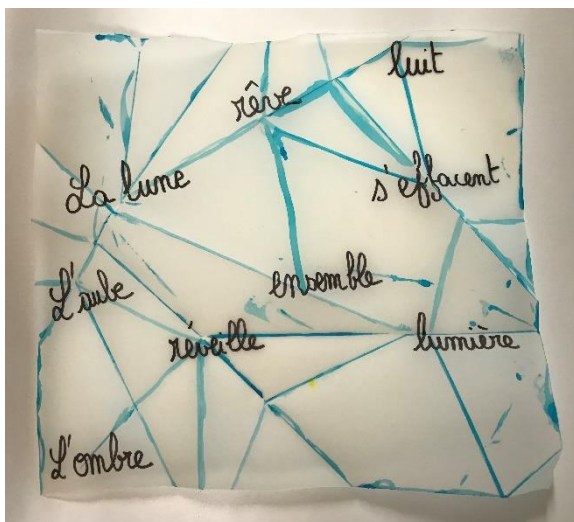 luit
rêve
La lune
s'effacent
L'aube
ensemble
réveille
lumière
L'ombre